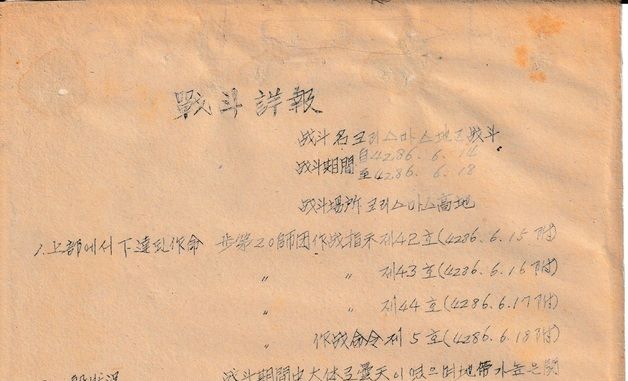 戰斗詳報
战斗名 크리스마스地区战斗
战斗期間 自4286. 6. 14
至4286. 6. 18
战斗場所 크리스마스高地
1. 上部에서下達된作命 步第20師団作战指示제42호(4286. 6. 15附)
〃 〃 제43호(4286. 6. 16附)
〃 〃 제44호(4286. 6. 17附)
〃 作战命令제5호(4286. 6. 18附)
般狀況 战斗期間中大体로曇天이였으며地帶가높은関